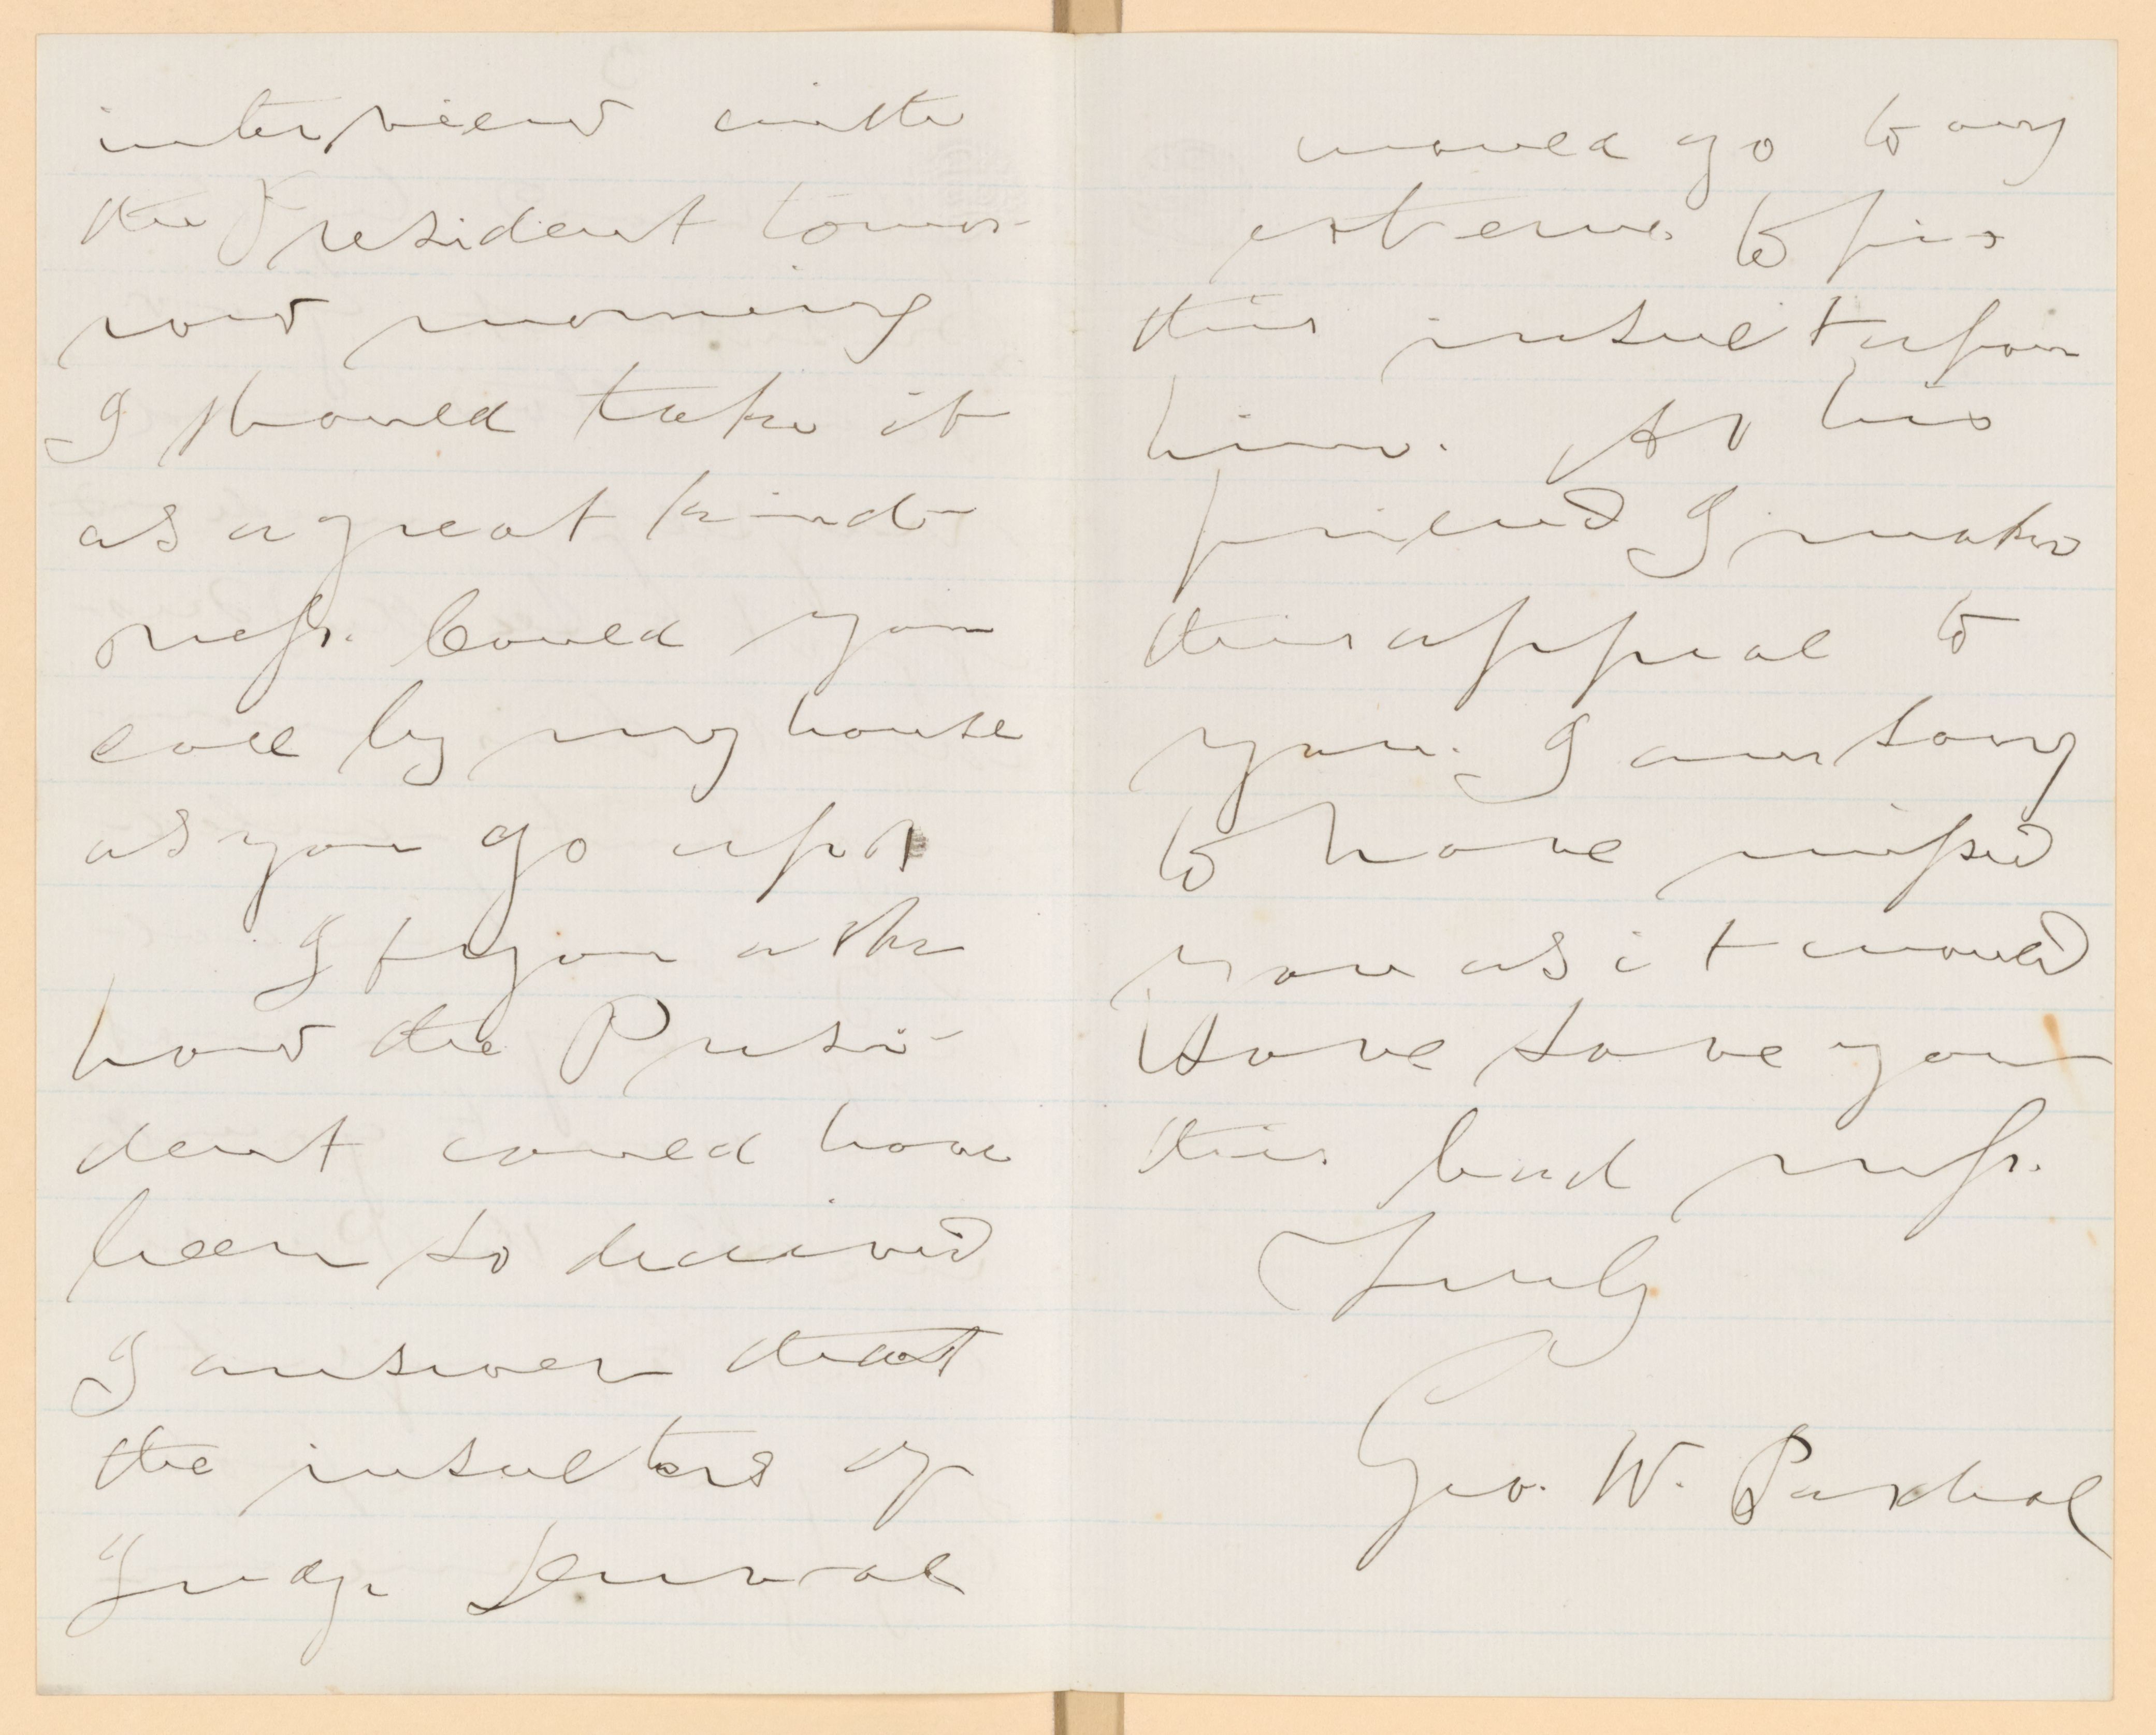 interview with
the President tomor-
row morning
I should take it
as a great kind-
ness. Could you
call by my house
as you go up
If you ask
how the Presi-
dent could have
been so deceived
I answer that
the insulters of
Judge Duval
would go to any
extreme to fix
this insult upon
him. As his
friend I make
this appeal to
you. I am sorry
to have missed
you as it would
have save you
this bad mss.
Truly
Geo. W. Paschal